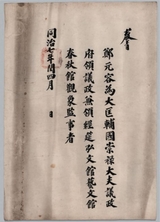 教旨
鄭元容為大匡輔國崇祿大夫議政
府領議政兼領經筵弘文館藝文館
春秋館觀象監事者
同治七年閏四月 日